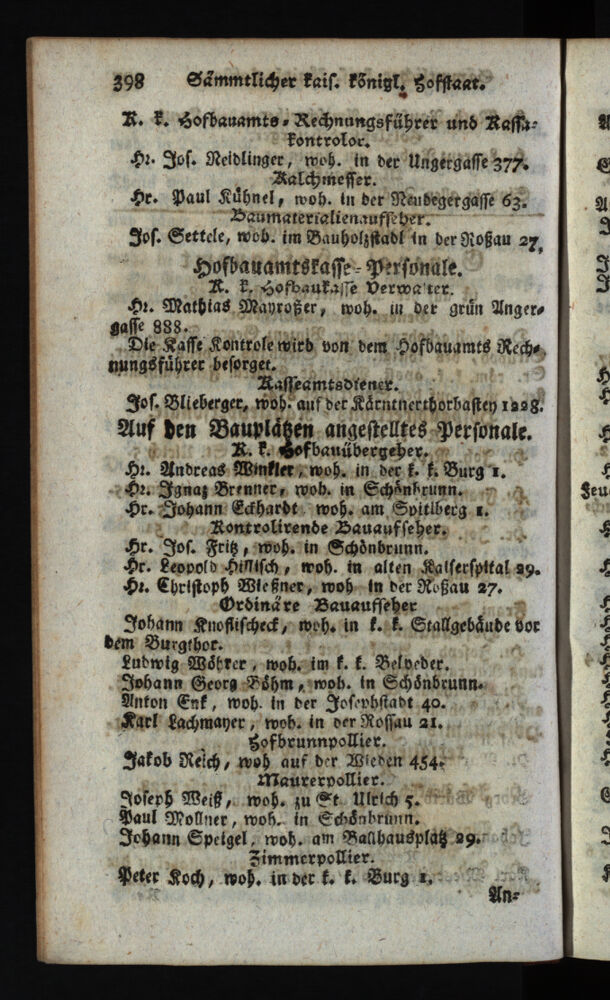 398 Sämmtlicher kais. königl. Hofstaat.
K. k. Hofbauamts-Rechnungsführer und Kassa-
kontrolor.
Hr. Jos. Neidlinger, woh. in der Ungergasse 377.
Kalchmesser.
Hr. Paul Kühnel, woh. in der Neudegergasse 63.
Baumaterialienaufseher.
Jos. Settele, woh. im Bauholzstadl in der Roßau 27.
Hofbauamtskasse-Personale.
K. k. Hofbaukasse Verwalter.
Hr. Mathias Mayroßer, woh. in der grün Anger-
gasse 888.
Die Kasse Kontrole wird von dem Hofbauamts Rech-
nungsführer besorget.
Kasseamtsdiener.
Jos. Blieberger, woh. auf der Kärntnerthorbastey 1228.
Auf den Bauplätzen angestelltes Personale.
K. k. Hofbauübergeher.
Hr. Andreas Winkler, woh. in der k. k. Burg 1.
Hr. Ignaz Brenner, woh. in Schönbrunn.
Hr. Johann Eckhardt woh. am Spitlberg 1.
Kontrolirende Bauaufseher.
Hr. Jos. Fritz, woh. in Schönbrunn.
Hr. Leopold Hillisch, woh. in alten Kaiserspital 29.
Hr. Christoph Wießner, woh in der Roßau 27.
Ordinäre Bauaufseher
Johann Knoflischeck, woh. in k. k. Stallgebäude vor
dem Burgthor.
Ludwig Wöhrer, woh. im k. k. Belveder.
Johann Georg Böhm, woh. in Schönbrunn.
Anton Enk, woh. in der Josephstadt 40.
Karl Lachmayer, woh. in der Rossau 21.
Hofbrunnpollier.
Jakob Reich, woh auf der Wieden 454.
Maurerpollier.
Joseph Weiß, woh. zu St Ulrich 5.
Paul Mollner, woh. in Schönbrunn.
Johann Speigel, woh. am Ballhausplatz 29.
Zimmerpollier.
Peter Koch, woh. in der k. k. Burg 1.
An-